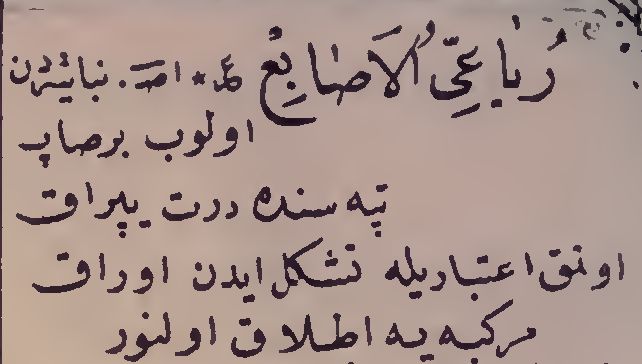 رُبَاعِيُّ الْاَصَابِعْ عر * اصـ. نباتيندن
اولوب برصاپ
تپه سنده درت يپراق
اونمق اعتباريله تشكل ايدن اوراق
مركبه يه اطلاق اولنور